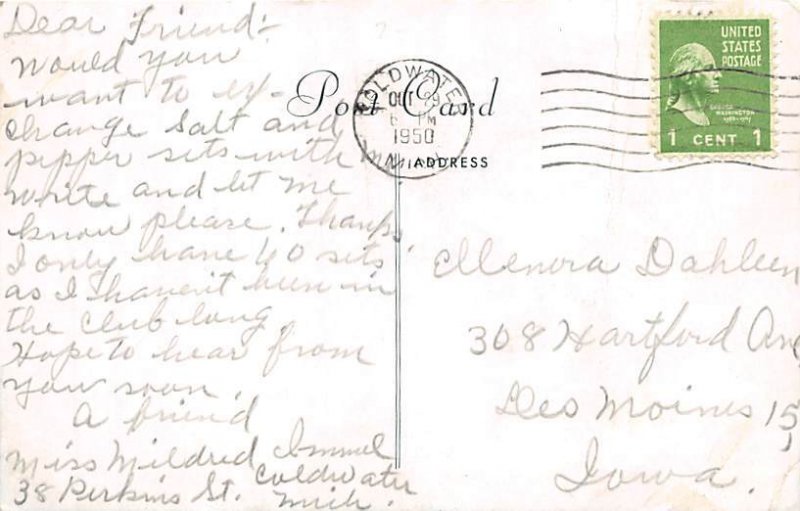 Dear Friend:-
Would you
want to ex-
change salt and
pepper sits with
write and let me
know please. Thanks
I only have 60 sits
as I haven't been in
the club long.
Hope to hear from
you soon.
A friend
Miss Mildred Immel
38 Perkins St. Coldwater
Mich.
Post Card
ADDRESS
COLDWATER
OCT 19
PM
1950
MICH.
UNITED
STATES
POSTAGE
GEORGE
WASHINGTON
1 CENT 1
Ellenora Dahleen
308 Hartford Ave
Des Moines 15,
Iowa.